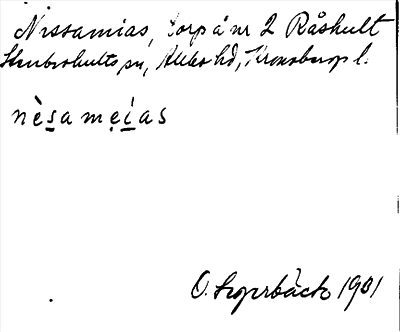 Nissamias, torp å nr 2 Råshult
Stenbrohults sn, Allbo hd, Kronobergs l.
nèsamẹías
O. 1901